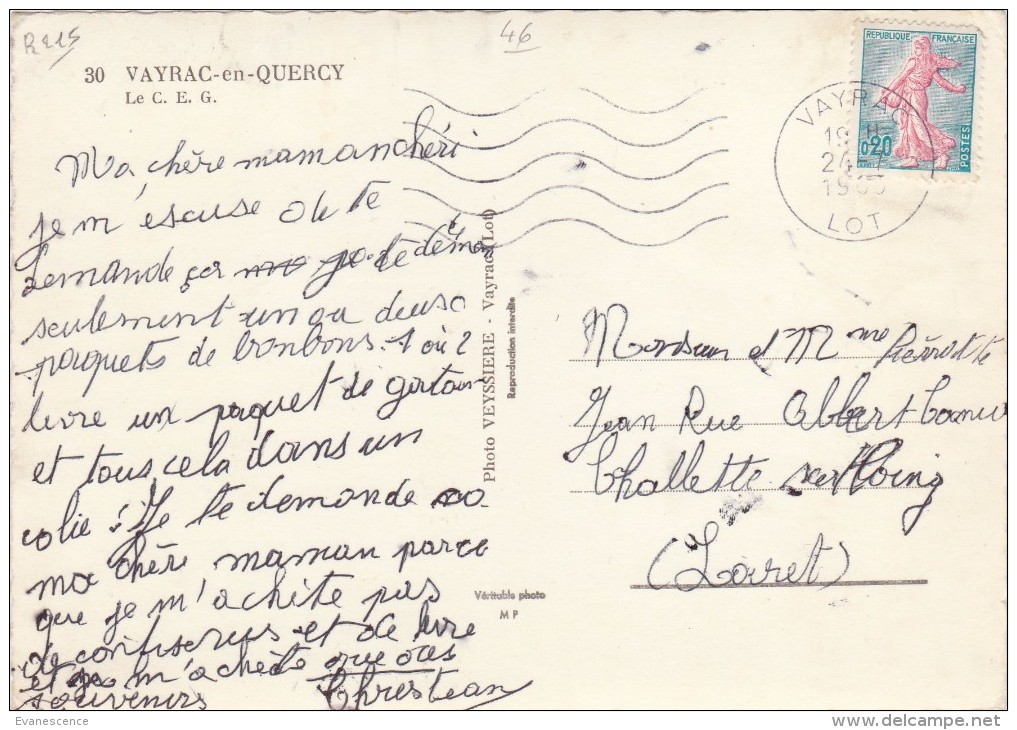 R225
46
30 VAYRAC-en-QUERCY
Le C. E. G.
RÉPUBLIQUE FRANÇAISE
0,20
POSTES
VAYRAC
19 H
24-7
LOT
Ma chère maman chéri
je m'éscuse de te
demande çar je te
seulement un ou deuso
paquets de bonbons. 1 où 2
livre un paquet de
et tous cela dans un
colie! Je te demande
ma chère maman parce
que je m'achète pas
de confiserus et de livre
et je m'achète que des
souvenirs Chrestean
Photo VEYSSIERE - Vayrac (Lot)
Reproduction interdite
Véritable photo
M P
Monsieur et Mme Pierrotte
Jean Rue Albert Camu
Challette sur Loing
(Loiret)
Evanescence
www.delcampe.net